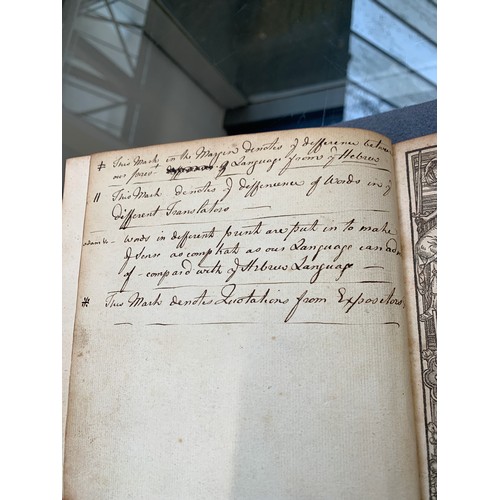 ‡ This Mark in the Margin denotes ÿ difference between
our pres.t of Language from ÿ Hebrew
|| This Mark denotes ÿ difference of Words in ÿ
different Translators
words in different print are put in to make
ÿ Sense as compleat as our Language can adm
of - compard with ÿ Hebrew Language
* This Mark denotes Quotations from Expositors.